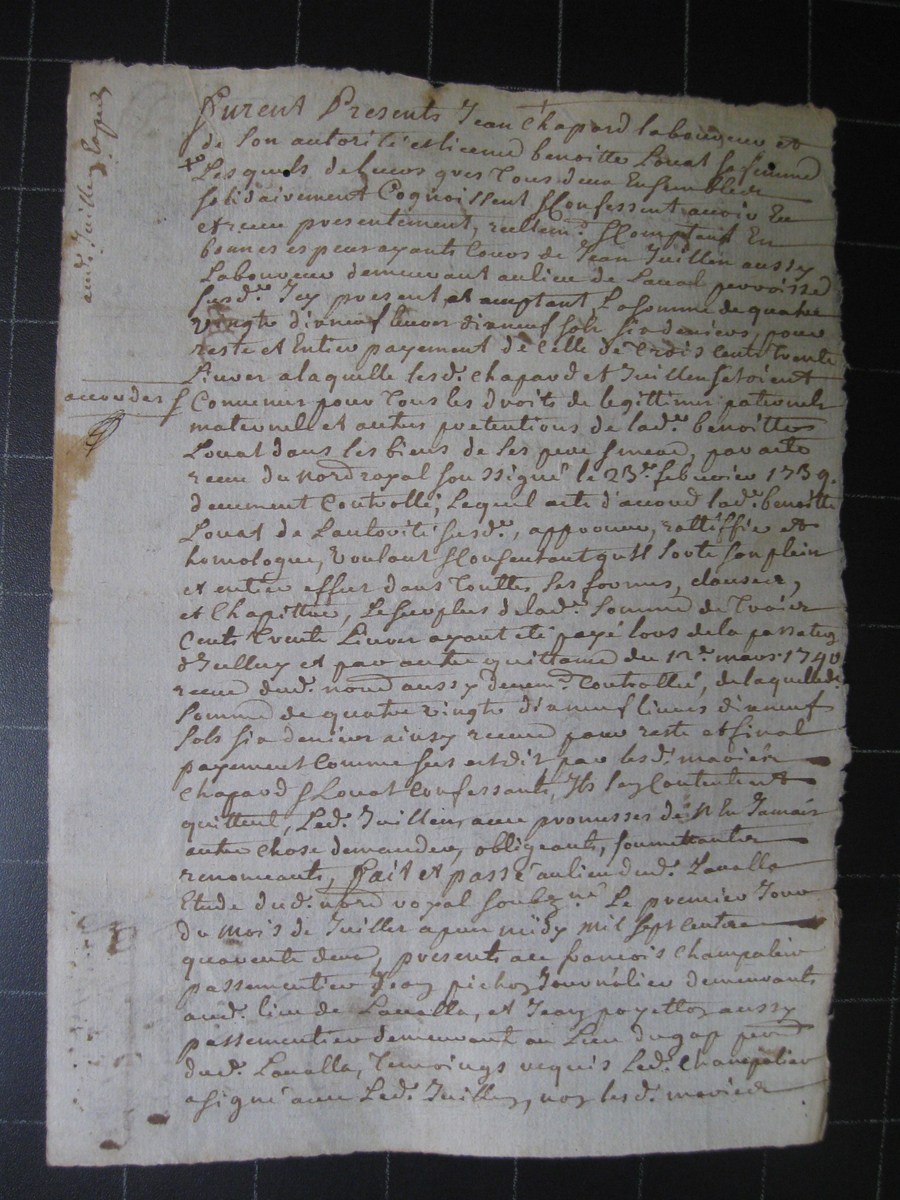 furent Presents Jean Chapard laboureur et
de Son autorité et licence benoitte Louat Sa femme
Lesquels de leurs gres Tous deux Ensemble et
solidairement Cognoissent & Confessent avoir Eu
et receu presentement, reellem.t & Comptant En
bonnes especes ayants Cours de Jean Juillien aussy
Laboureur demeurant au lieu de parroisse
susd.e Icy present et acceptant La Somme de quatre
vingts dixneuf livres dixneuf sols six deniers, pour
reste et Entier payement de Celle de Trois Cents Trente
Livres a laquelle lesd.s Chapard et Juillien Setoient
Convenus pour Tous les droits de legittimes paternels
maternels et autres pretentions de lad.e benoitte
Louat dans les biens de Ses pere & mere, par acte
receu du No.re royal Soussigné le 23.e febvrier 1739.
deuement Controllé, Lequel acte d'accord lad.e benoitte
Louat de Lautorité Susd.e, approuve, rattiffie et
homologue, voulant & Consentant qu'il Sorte Son plein
et entier effet dans Touttes Ses formes, clauses,
et Chapittres, Le Surplus de lad.e Somme de Trois
Cents Trente Livres ayant eté payé lors de la passation
d'Icelluy et par autre quittance du 12.e mars 1740
receue dud. no.re aussy deuem.t Controllée, de laquelle d.e
Somme de quatre vingts dixneuf livres dixneuf
Sols six deniers ainsy receue pour reste et final
payement Comme Sus est dit par lesd.s mariés
Chapard & Louat Confessants, Ils Sen Contentent
quittent, Led. Juillien, avec promesses de N En Jamais
autre chose demander, obligeants, Soumettants
renonceants, fait et passé au lieu dud. Lavalla
Etude dud. no.re royal Soubzné Le premier Jour
du mois de Juillet apres midy mil Sept Cents
quarente deux, presents françois Champalier
passementier Jean pichon Journalier demeurants
aud. lieu de Lavalla, et Jean poyetton aussy
passementier demeurant au Lieu dugap
dud. Lavalla, Temoings requis Led. Champalier
a signé avec Led. Juillien, non les d.s mariés
aud. Juillien
accordes